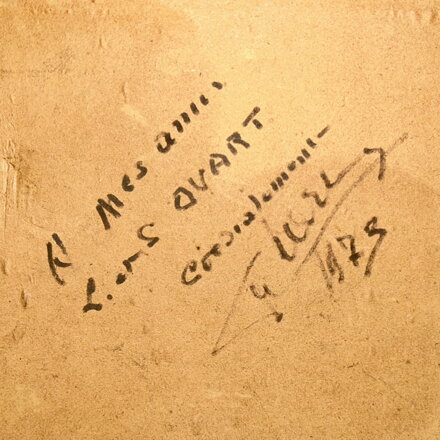 A Mes amis
L. ons OVART
Cordialement
1975